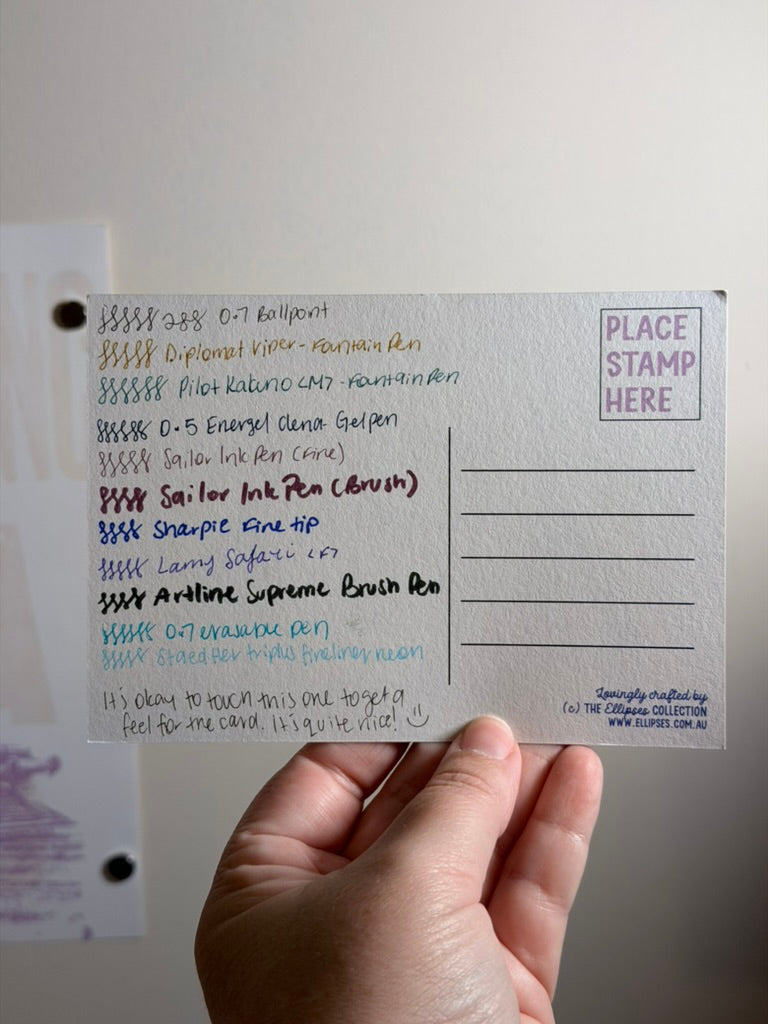 0.7 Ballpoint
Diplomat Viper - Fountain Pen
Pilot Kakuno <M> - Fountain Pen
0.5 Energel Clena Gelpen
Sailor Ink Pen (Fine)
Sailor Ink Pen (Brush)
Sharpie Fine tip
Lamy Safari <F>
Artline Supreme Brush Pen
0.7 erasable pen
Staedtler triplus fineliner neon
It's okay to touch this one to get a
feel for the card. It's quite nice!
PLACE
STAMP
HERE
Lovingly crafted by
(c) THE Ellipses COLLECTION
WWW.ELLIPSES.COM.AU